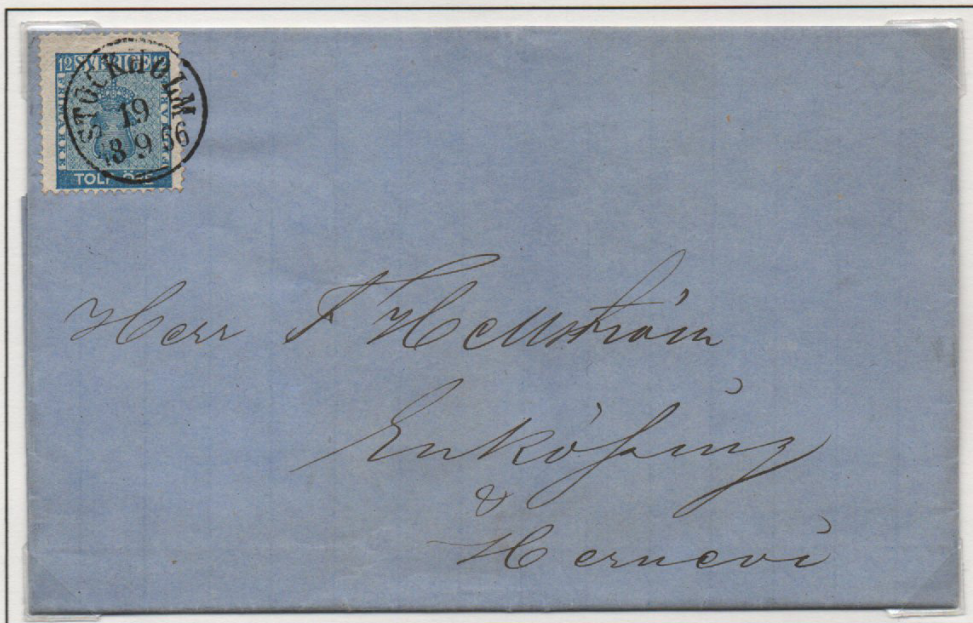 12 SVERIGE 12
STOCKHOLM
19
9
TOLF ÖRE
Herr F Hellström
Enköping
&
Hernevi